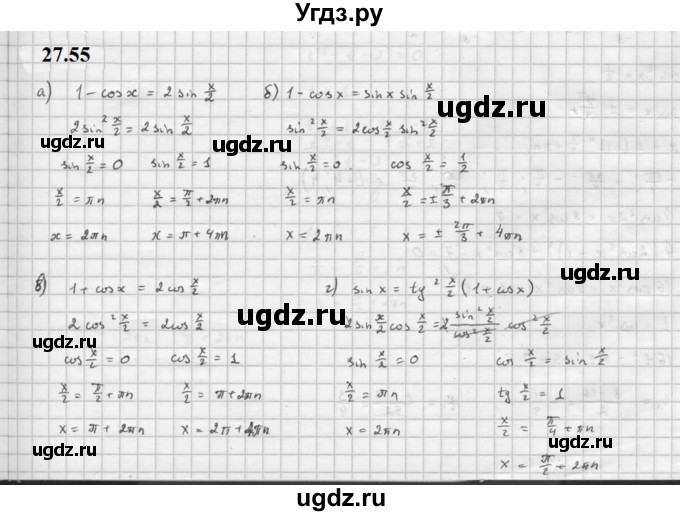 Угдз.ру
27.55
а) 1 - cos x = 2 sin x/2
2 sin² x/2 = 2 sin x/2
sin x/2 = 0 sin x/2 = 1
x/2 = πn x/2 = π/2 + 2πn
x = 2πn x = π + 4πn
б) 1 - cos x = sin x sin x/2
sin² x/2 = 2 cos x/2 sin² x/2
sin x/2 = 0 cos x/2 = 1/2
x/2 = πn x/2 = ± π/3 + 2πn
x = 2πn x = ± 2π/3 + 4πn
в) 1 + cos x = 2 cos x/2
2 cos² x/2 = 2 cos x/2
cos x/2 = 0 cos x/2 = 1
x/2 = π/2 + πn x/2 = π + 2πn
x = π + 2πn x = 2π + 4πn
г) sin x = tg² x/2 (1 + cos x)
2 sin x/2 cos x/2 = 2 sin² x/2 / cos² x/2 cos² x/2
sin x/2 = 0 cos x/2 = sin x/2
x/2 = πn tg x/2 = 1
x = 2πn x/2 = π/4 + πn
x = π/2 + 2πn
uгдз.ru
uгдз.ru
uгдз.ru
uгдз.ru
uгдз.ru
uгдз.ru
uгдз.ru
uгдз.ru